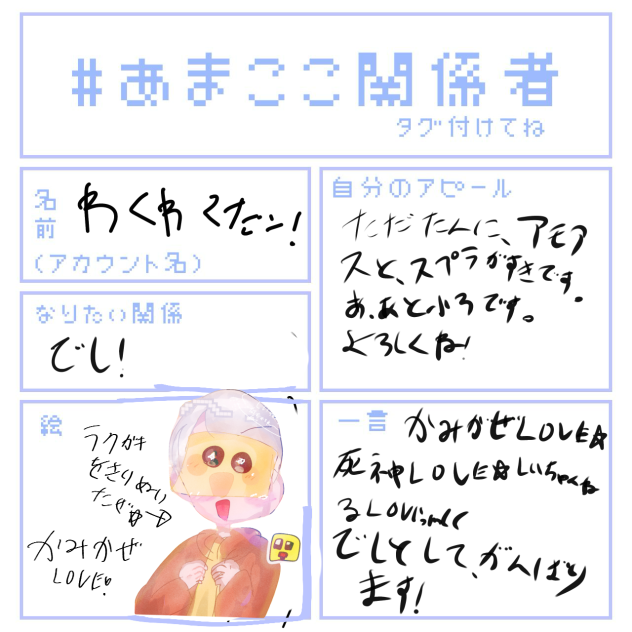 #あまここ関係者
タグ付けてね
名前
わくわくたこン!
(アカウント名)
自分のアピール
ただ たんに、アモア
スと、スプラがすきです。
あ、あと小3です。
よろしくね!
なりたい関係
でし!
絵
ラクガキ
をきりぬい
たぜ
かみかぜ
LOVE!
一言
かみかぜLOVE☆
死神LOVE☆しいちゃんね
るLOVE
でしとして、がんばり
ます!